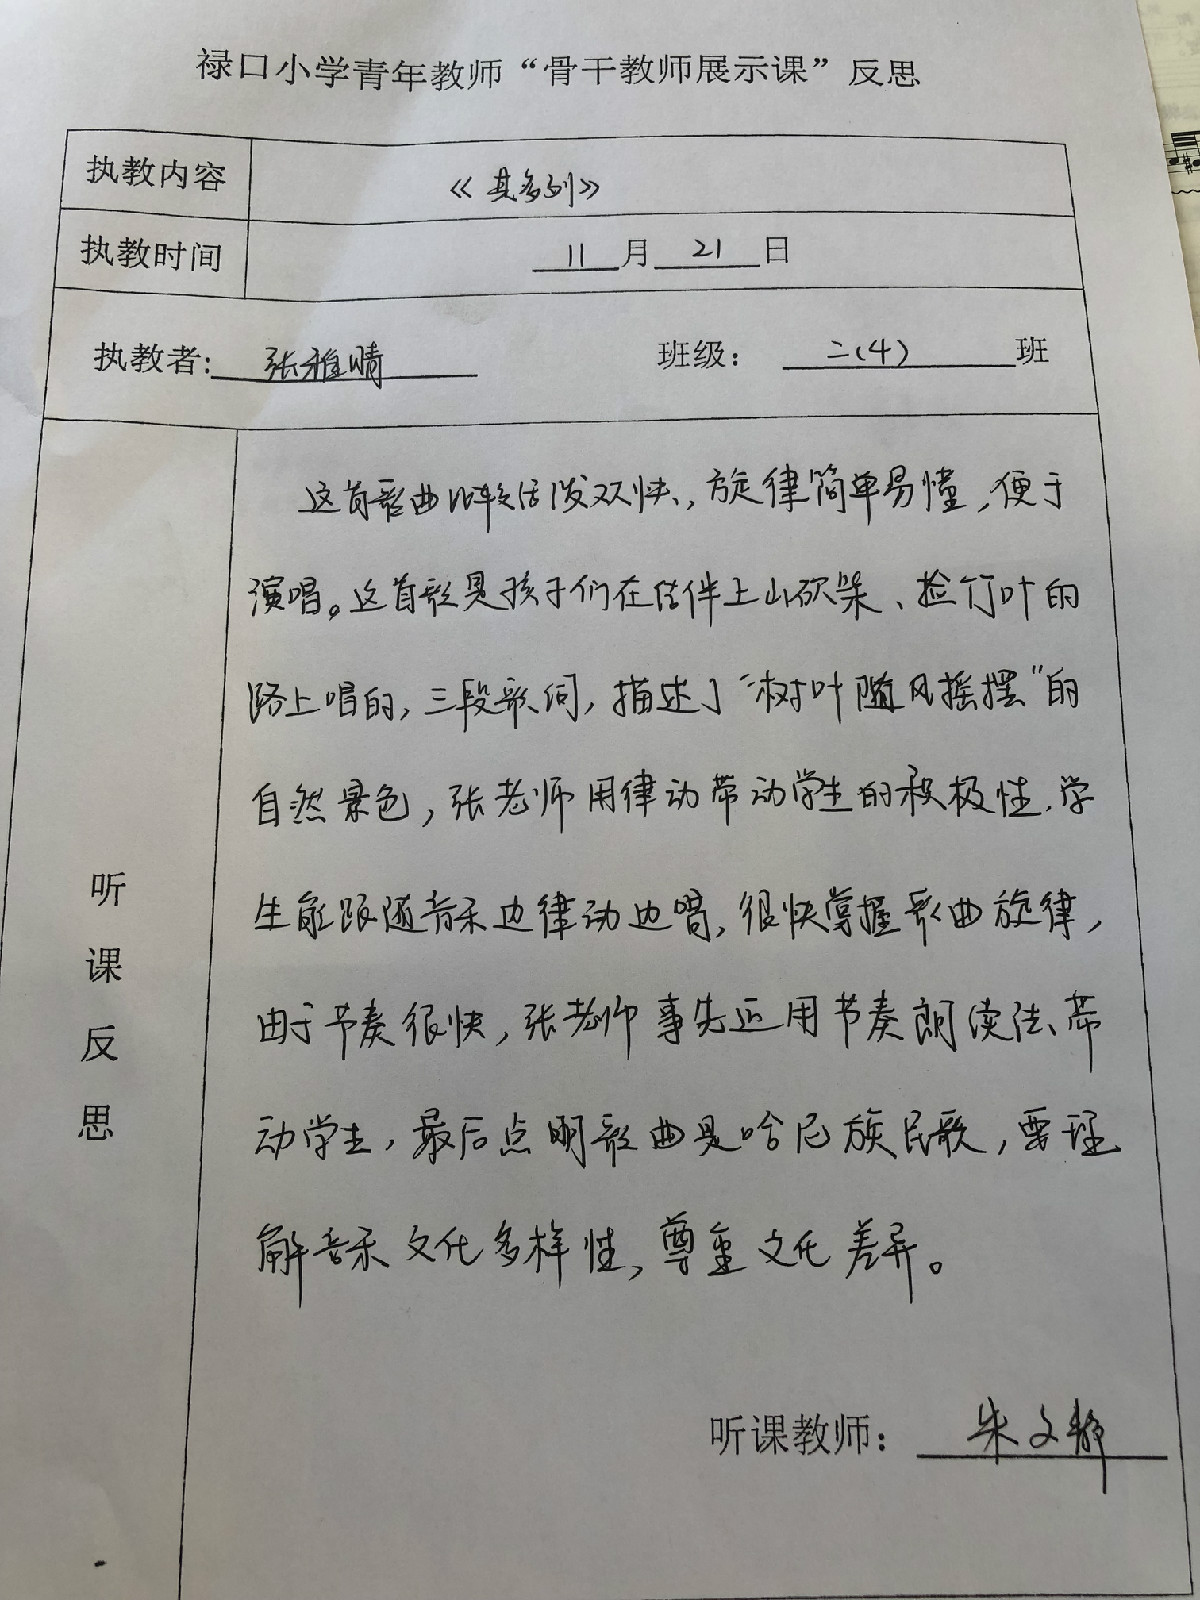 禄口小学青年教师“骨干教师展示课”反思
执教内容 《其多列》
执教时间 11月21日
执教者：张雅晴 班级：二(4)班
听课反思
这首歌曲比较活泼欢快，旋律简单易懂，便于
演唱。这首歌是孩子们在结伴上山砍柴、捡竹叶的
路上唱的，三段歌词，描述了“树叶随风摇摆”的
自然景色，张老师用律动带动学生的积极性，学
生能跟随音乐边律动边唱，很快掌握歌曲旋律，
由于节奏很快，张老师事先运用节奏朗读法、带
动学生，最后点明歌曲是哈尼族民歌，要理
解音乐文化多样性，尊重文化差异。
听课教师：朱文静